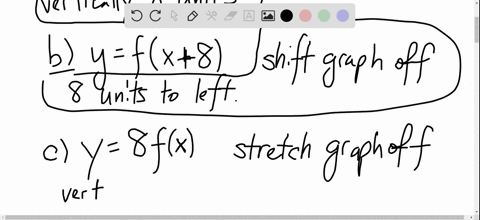 b) y = f(x+8) shift graph of f
8 units to left.
c) y = 8f(x) stretch graph of f
vert